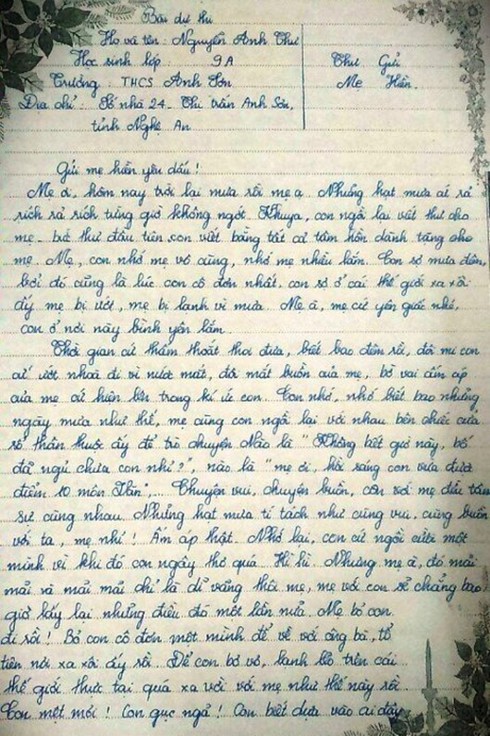 Bài dự thi
Họ và tên: Nguyễn Anh Thư
Học sinh lớp: 9A
Thư Gửi
Trường: THCS Anh Sơn
Mẹ Hiền.
Địa chỉ: Số nhà 24 - Thị trấn Anh Sơn,
tỉnh Nghệ An
Gửi mẹ hiền yêu dấu!
Mẹ ơi, hôm nay trời lại mưa rồi mẹ ạ. Những hạt mưa cứ rả
rích rả rích từng giờ không ngớt. Khuya, con ngồi lại viết thư cho
mẹ - bức thư đầu tiên con viết bằng tất cả tâm hồn dành tặng cho
mẹ. Mẹ, con nhớ mẹ vô cùng, nhớ mẹ nhiều lắm. Con sợ mưa đêm,
bởi đó cũng là lúc con cô đơn nhất, con sợ ở cái thế giới xa xôi
ấy mẹ bị ướt, mẹ bị lạnh vì mưa. Mẹ à, mẹ cứ yên giấc nhé,
con ở nơi này bình yên lắm.
Thời gian cứ thấm thoắt thoi đưa, biết bao đêm rồi, đôi mi con
cứ ướt nhoà đi vì nước mắt, đôi mắt buồn của mẹ, bờ vai ấm áp
của mẹ cứ hiện lên trong kí ức con. Con nhớ, nhớ biết bao những
ngày mưa như thế, mẹ cùng con ngồi lại với nhau bên chiếc cửa
sổ thân thuộc ấy để trò chuyện. Nào là "Không biết giờ này, bố
đã ngủ chưa con nhỉ?", nào là "mẹ ơi, hồi sáng con vừa được
điểm 10 môn Văn",... Chuyện vui, chuyện buồn, con với mẹ đều tâm
sự cùng nhau. Những hạt mưa tí tách như cùng vui, cùng buồn
với ta, mẹ nhỉ! Ấm áp thật. Nhớ lại, con cứ ngồi cười một
mình vì khi đó con ngây thơ quá. Hì hì. Nhưng mẹ à, đó mãi
mãi và mãi mãi chỉ là dĩ vãng thôi mẹ, mẹ với con sẽ chẳng bao
giờ lấy lại những điều đó một lần nữa. Mẹ bỏ con
đi rồi! Bỏ con cô đơn một mình để về với ông bà, tổ
tiên nơi xa xôi ấy rồi... Để con bơ vơ, lạnh lẽo trên cái
thế giới thực tại quá xa vời với mẹ như thế này rồi
Con mệt mỏi! Con gục ngã! Con biết dựa vào ai đây